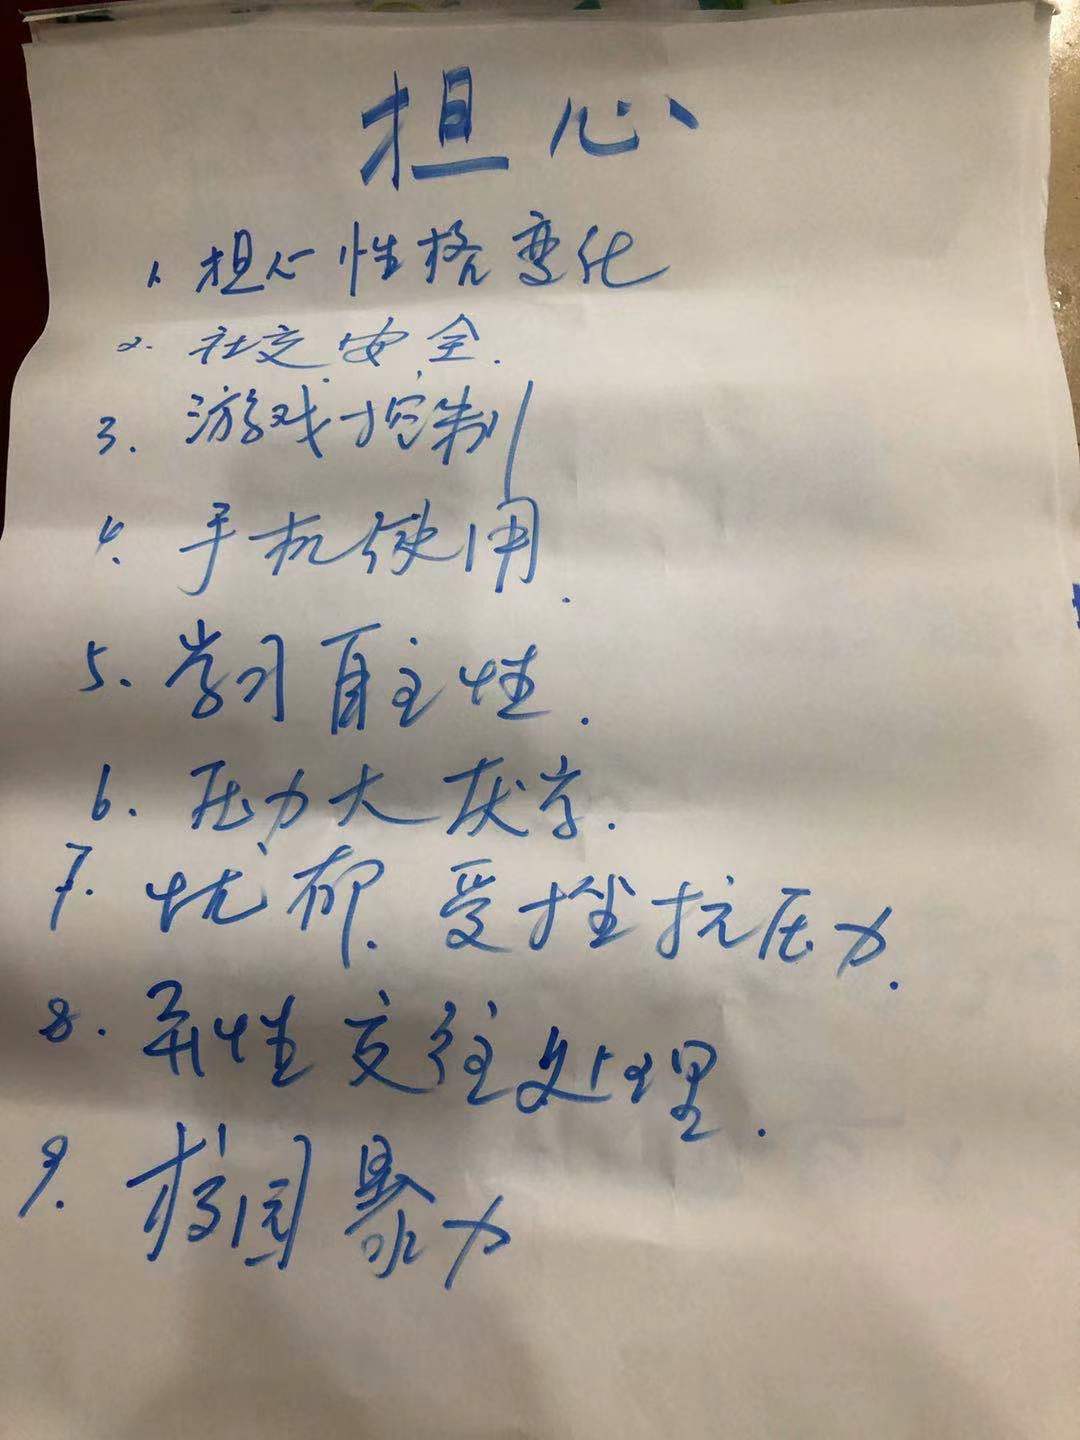 担心
1. 担心性格变化
2. 社交安全.
3. 游戏控制
4. 手机使用.
5. 学习自主性.
6. 压力大厌学.
7. 忧郁、受挫抗压力.
8. 异性交往处理.
9. 校园暴力